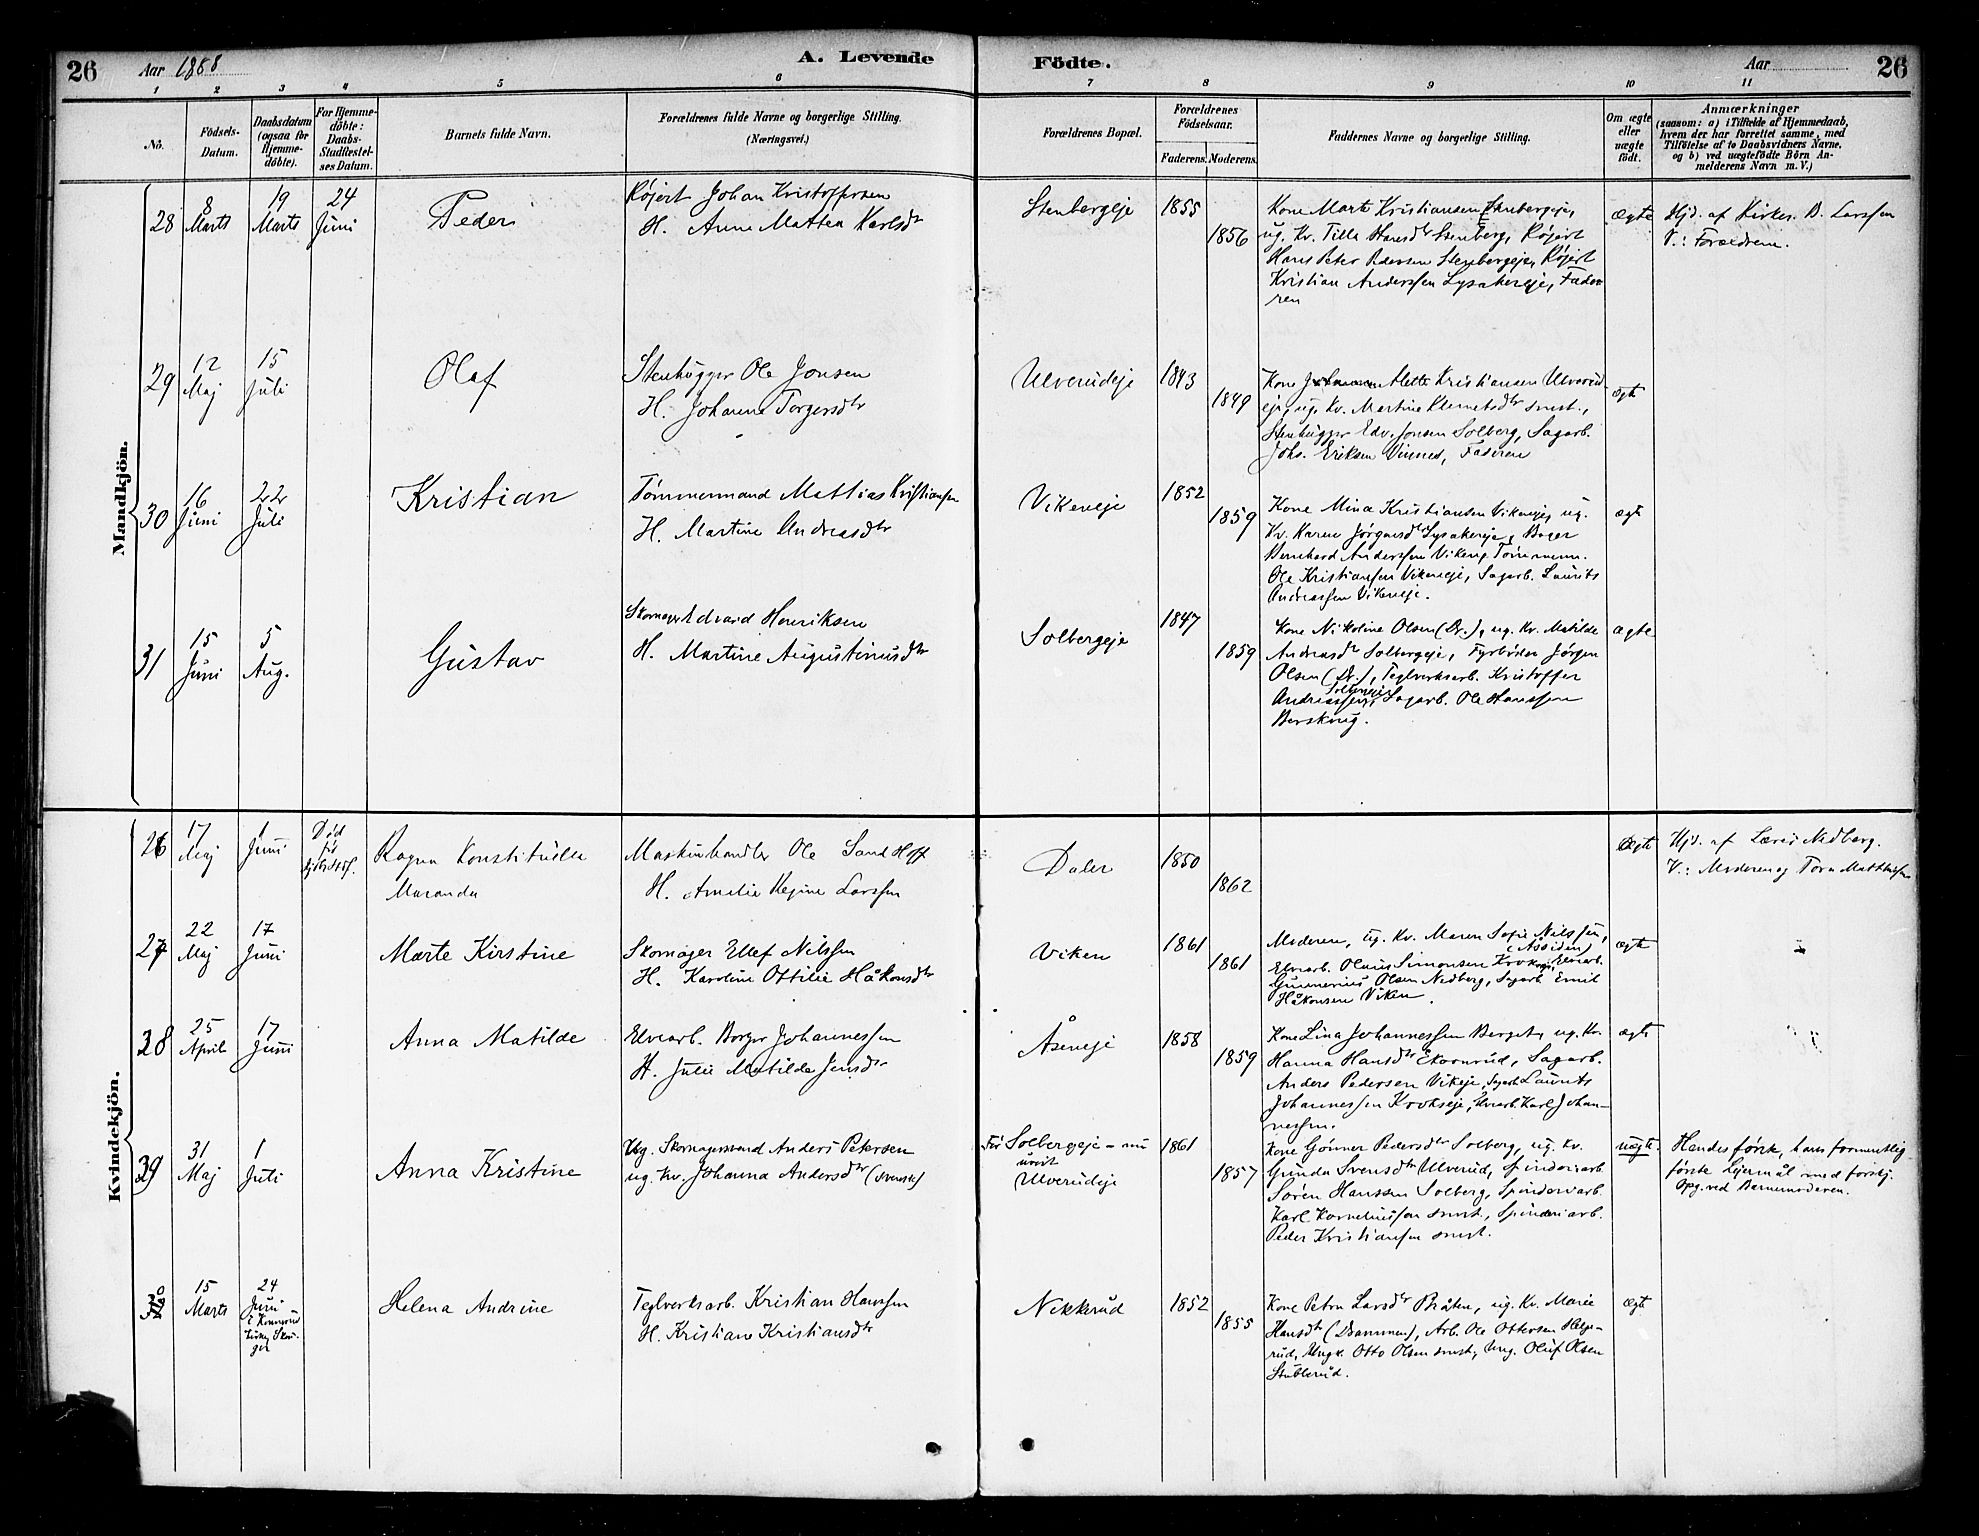 26 Aar 1888 A. Levende Födte. Aar 26
1 2 3 4 5 6 7 8 9 10 11
No.
Födsels-
Datum.
Daabsdatum
(ogsaa for
Hjemme-
döbte).
For Hjemme-
döbte:
Daabs-
Stadfæstel-
ses Datum.
Barnets fulde Navn.
Forældrenes fulde Navne og borgerlige Stilling.
(Næringsvei.)
Forældrenes Bopæl.
Forældrenes
Födselsaar.
Faderens. Moderens.
Faddernes Navne og borgerlige Stilling.
Om ægte
eller
uægte
födt.
Anmærkninger
(saasom: a) i Tilfælde af Hjemmedaab,
hvem der har forrettet samme, med
Tilföielse af to Daabsvidners Navne,
og b) ved uægtefödte Börn An-
melderens Navn m. V.)
Mandkjön.
28
8
Marts
19
Marts
24
Juni
Peder
Røjert Johan Kristoffersen
H. Anne Mathea Karlsdtr
Stenbergeje
1855
1856
Kone Marte Kristiansen Stenbergeje,
ug. Kv. Tilla Hansdtr Stenberg, Røjert
Hans Peter Pedersen Stenbergeje, Røjert
Kristian Anderssen Lysakereje, Fade-
ren
ægte
Hjd. af Kirkes. B. Larssen
V.: Forældrene.
29
12
Maj
15
Juli
Olaf
Stenhugger Ole Jonsen
H. Johanne Torgersdtr
Ulverudeje
1843
1849
Kone Alette Kristiansen Ulverud
eje, ug. Kv. Martine Klemetsdtr smst.,
Stenhugger Edv. Jonsen Solberg, Sagarb.
Johs. Eriksen Vinnes, Faderen
ægte
30
16
Juni
22
Juli
Kristian
Tømmermand Mattias Kristiansen
H. Martine Andreasdtr
Vikeneje
1852
1859
Kone Mina Kristiansen Vikeneje, ug.
Kv. Karen Jørgensdtr Lysakereje, Bager
Bernhard Anderssen Viken, Tømmerm.
Ole Kristiansen Vikeneje, Sagarb. Laurits
Andreassen Vikeneje.
ægte
31
15
Juni
5
Aug.
Gustav
Skomager Edvard Henriksen
H. Martine Augustinusdtr
Solbergeje
1847
1859
Kone Nikoline Olsen (Dr.), ug. Kv. Matilde
Andreasdtr Solbergeje, Fyrbøder Jørgen
Olsen (Dr.), Teglverksarb. Kristoffer
Andreassen Solbergeje, Sagarb. Ole Hanssen
Berskoug.
ægte
Kvindekjön.
26
17
Maj
1
Juni
Død
før
Ragna Konstituella
Maranda
Maskinhandler Ole Sand Hoff
H. Amelie Regine Larssen
Daler
1850
1862
Ægte
Hjd. af Lærer Nedberg.
V.: Moderen og Tora Matthissen
27
22
Maj
17
Juni
Marte Kirstine
Skomager Ellef Nilssen
H. Karoline Ottilie Håkonsdtr
Viken
1861
1861
Moderen, ug. Kv. Maren Sofie Nilssen,
(Assiden)
Elvearb. Olaus Simonsen Krokseje, Elvearb.
Gunnerius Olsen Nedberg, Sagarb Emil
Håkonsen Viken.
ægte
28
25
April
17
Juni
Anna Matilde
Elvearb. Borger Johannessen
H. Julie Matilde Jensdtr
Åseneje
1858
1859
Kone Lina Johannessen Berget, ug. Kv.
Hanna Hansdtr Ekornrud, Sagarb.
Anders Pedersen Vikeje, Sagarb Laurits
Johannessen Krokseje, Elvearb. Karl Johan-
nessen.
ægte
29
31
Maj
1
Juli
Anna Kristine
Ug. Skomagersvend Anders Petersen
ug. Kv. Johanna Andersdtr (svensk)
Før Solbergeje - nu
Ulverudeje
1861
1857
Kone Gønner Pedersdtr Solberg, ug. Kv.
Gunda Svensdtr Ulverud, Spinderiarb
Søren Hanssen Solberg, Spinderiarb.
Karl Korneliussen smst., Spinderiarb.
Peder Kristiansen smst.
uægte.
Handes første, hans formentlig
første Lejermål med forskj.
Opg. ved Barnemoderen.
30
15
Marts
24
Juni
Helena Andrine
Teglverksarb. Kristian Hanssen
H. Kristiane Kristiansdtr
Nekkerud
1852
1855
Kone Petra Larsdtr Bråten, ug. Kv. Marie
Hansdtr (Drammen), Arb. Ole Ottersen Helge-
rud, Ungk. Otto Olsen smst., Ung. Oluf Olsen
Stublerud.
ægte